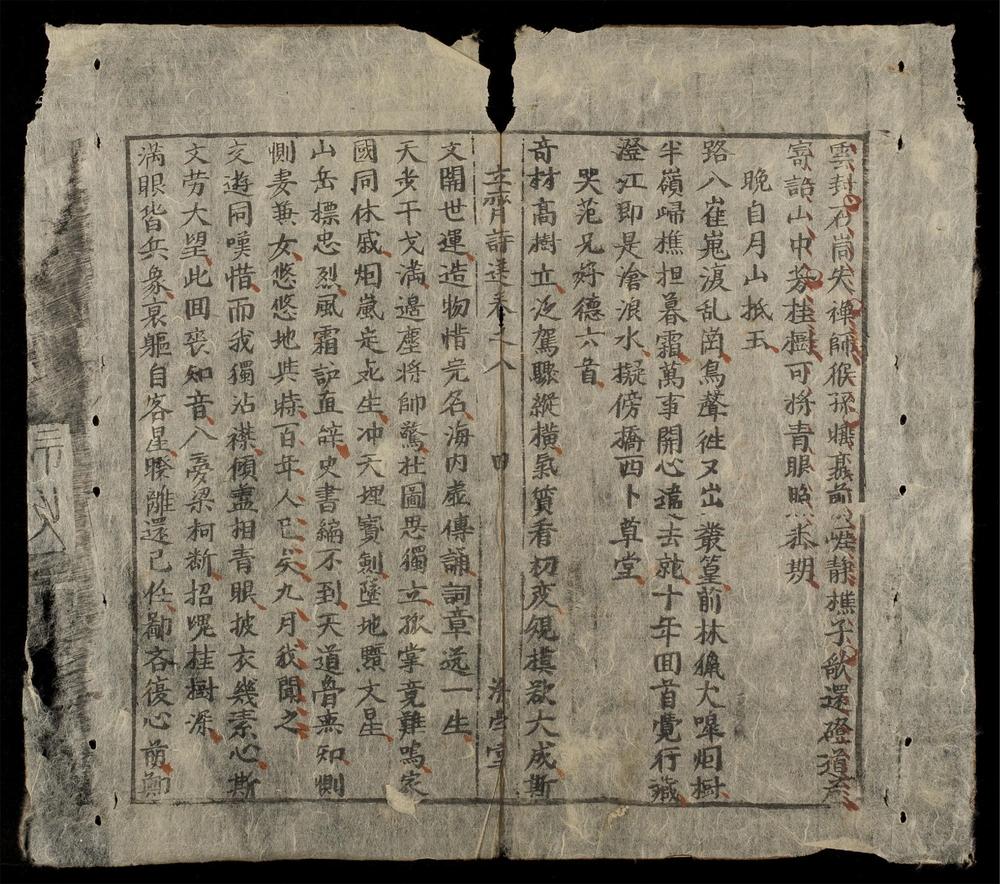 雲封石𥕢失禪師猴孫懶裹前山啼靜樵子歌還磴道
寄語山中芳桂樹可將青眼照來期
晚自月山抵玉
路入崔嵬復乱崗鳥聲徃又出叢篁前林獵犬嘷烟樹
半嶺歸樵担暮霜萬事開心違去就十年回首覺行藏
澄江即是滄浪水擬傍橋西卜草堂
哭范兄好德六首
奇材高樹立泛駕驟縱橫氣質看初変規模欲大成斯
立齊詩選卷之八 四 學堂
文開世運造物惜完名海內虛傳誦詞章送一生
天步干戈滿邊塵將帥驚杜圖思獨立孤掌竟難鳴家
國同休戚烟嵐定死生冲天埋寶劍墜地隕文星
山岳標忠烈風霜認血誠史書編不到天道骨無知惻
惻妻兼女悠悠地共時百年人已矣九月我聞之
交遊同嘆惜而我獨沾襟傾盖相青眼披衣幾素心斯
文劳大望此回喪知音入夢梁柯断招魂桂樹深
滿眼皆兵象哀軀自客星暌離還已任鄙吝復心萌